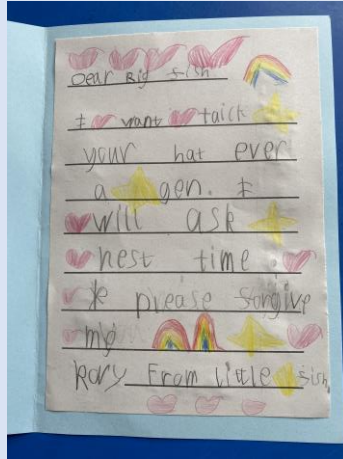 Dear Big fish
I wont taick
your hat ever
a gen. I
will ask
nest time
please forgive
me
Rory From little fish